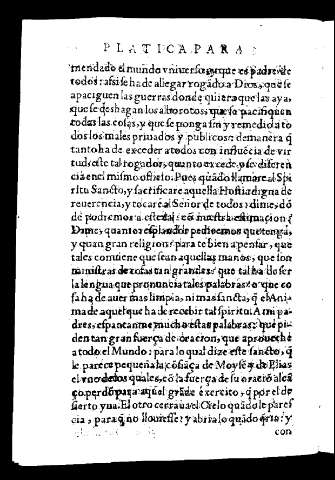 PLATICA PARA
mendado el mundo vniverso, y que es padre de
todos: assi se ha de allegar rogãdo a Dios, que se
apaciguen las guerras donde quiera que las aya,
que se deshagan los alborotos, que se pacifiquen
todas las cosas, y que se ponga fin y remedio a to
dos los males privados y publicos: demanera q̃
tanto ha de exceder a todos con influẽcia de vir
tud, este tal rogador, quanto excede, y se diferen
cia en el mismo oficio. Pues quãdo llamare al Spi
ritu Sancto, y sacrificare aquella Hostia digna de
reverencia, y tocare al Señor de todos: dime, dõ
de podremos a este tal cõ nuestra estimacion?
Dime, quanto esplandor pediremos que tenga,
y quan gran religion? para te bien a pensar, que
tales conviene que sean aquellas manos, que son
ministras de cosas tan grandes: que tal ha de ser
la lengua que pronuncia tales palabras: o que co
sa ha de auer mas limpia, ni mas sancta, q̃ el Ani
ma de aquel que ha de recebir tal spiritu. A mi pa
dres, espantanme mucho estas palabras: que pi-
den tan gran fuerça de oracion, que aproueche
a todo el Mundo: para lo qual dize este sancto, q̃
le parece pequeña la cõfiãça de Moysẽ y de Elias
el vno de los quales, cõ la fuerça de su oraciõ alcã
ço perdõ para aquel grãde exercito, q̃ por el de
sierto yua. El otro cerraua el Cielo quãdo le pares
cia, para q̃ no llouiesse: y abrialo quãdo q̃ria: y
con